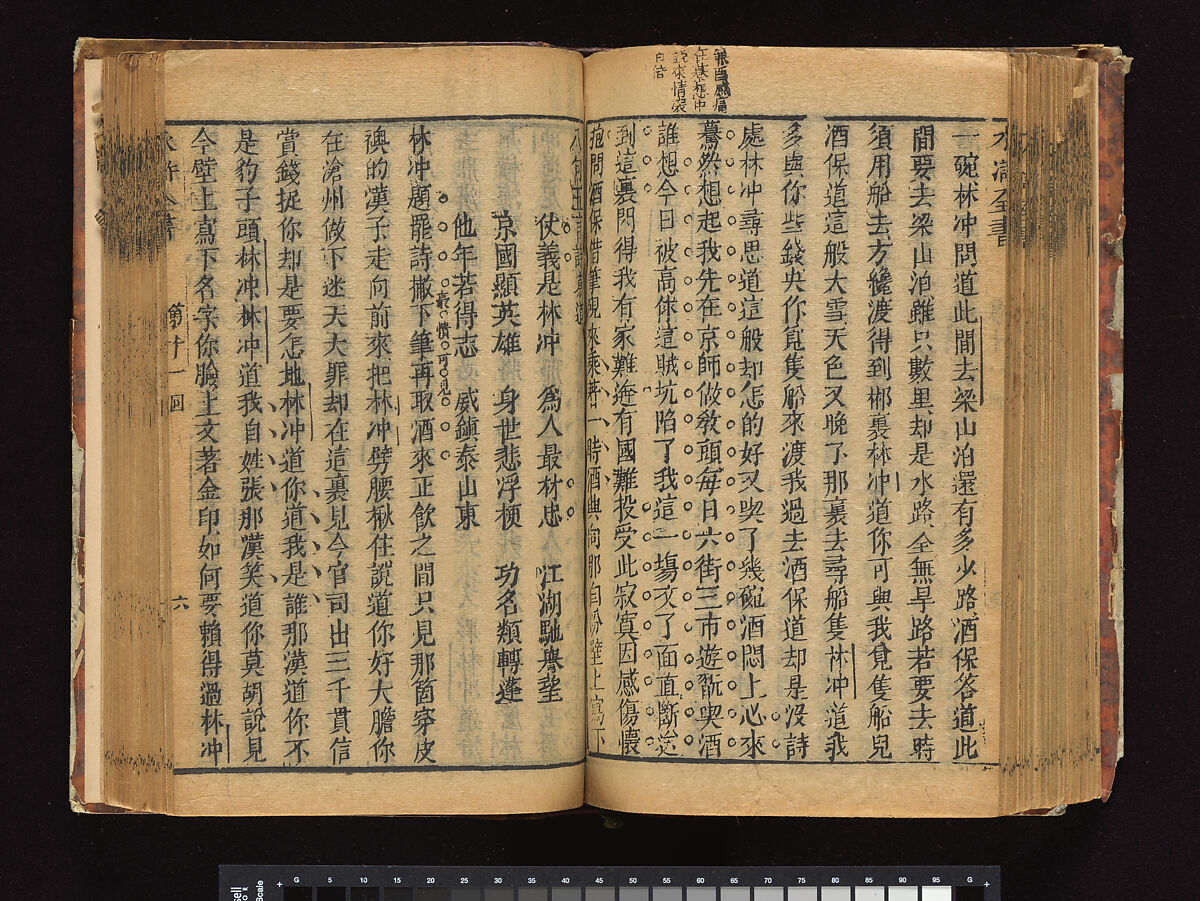 水滸全書
一碗林冲問道此間去梁山泊還有多少路酒保答道此
間要去梁山泊雖只數里却是水路全無旱路若要去時
須用船去方纔渡得到那裏林冲道你可與我覓隻船兒
酒保道這般大雪天色又晚了那裏去尋船隻林冲道我
多與你些錢央你覓隻船來渡我過去酒保道却是沒討
處林冲尋思道這般却怎的好又喫了幾碗酒悶上心來
驀然想起我先在京師做敎頭每日六街三市遊翫喫酒
誰想今日被高俅這賊坑陷了我這一場文了面直斷送
到這裏閃得我有家難逩有國難投受此寂寞因感傷懷
抱問酒保借筆硯來乘著一時酒興向那白粉壁上寫下
八句五言詩寫道
仗義是林冲 爲人最朴忠 江湖馳譽望
京國顯英雄 身世悲浮梗 功名類轉蓬
他年若得志 威鎮泰山東
林冲題罷詩撇下筆再取酒來正飲之間只見那箇穿皮
襖的漢子走向前來把林冲劈腰楸住說道你好大膽你
在滄州做下迷天大罪却在這裏見今官司出三千貫信
賞錢捉你却是要怎地林冲道你道我是誰那漢道你不
是豹子頭林冲林冲道我自姓張那漢笑道你莫胡說見
今壁上寫下名字你臉上文著金印如何要賴得過林冲
第十一回 六
G 5 10 15 20 25 30 35 40 45 50 55 60 65 70 75 80 85 90 95 G